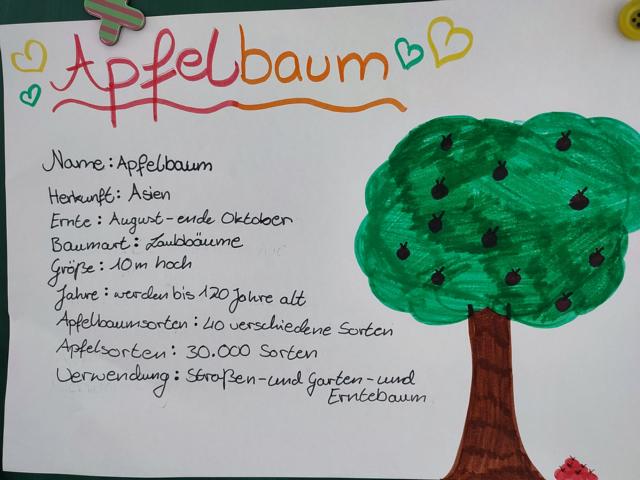 Apfelbaum
Name: Apfelbaum
Herkunft: Asien
Ernte: August-ende Oktober
Baumart: Laubbäume
Größe: 10m hoch
Jahre: werden bis 120 Jahre alt
Apfelbaumsorten: 40 verschiedene Sorten
Apfelsorten: 30.000 Sorten
Verwendung: Straßen-und Garten-und
Erntebaum